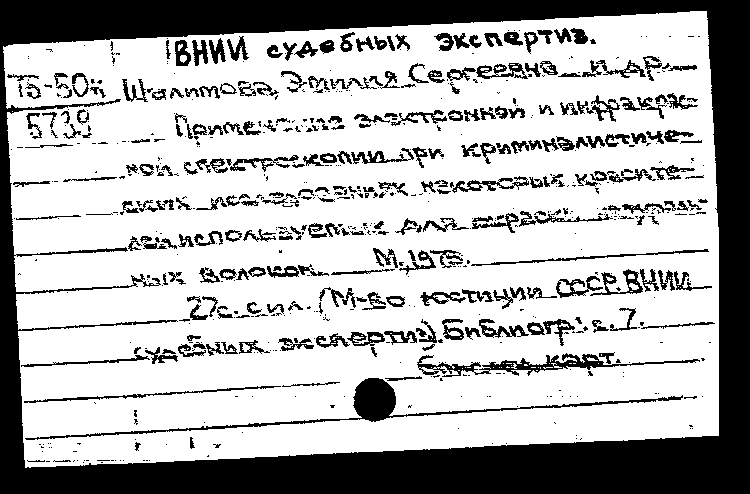 ВНИИ судебных экспертиз.
Шалимова, Эмилия Сергеевна и др.
5739 Применение электронной и инфракрас-
ной спектроскопии при криминалистиче-
ских исследованиях некоторых красите-
лей, используемых для окраски натураль-
ных волокон. М., 197
27с. с ил. (М-во юстиции СССР. ВНИИ
судебных экспертиз). Библиогр.: с. 7.
карт.